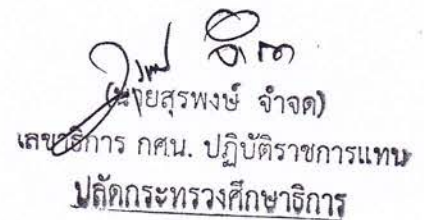 (นายสุรพงษ์ จำจด)
เลขาธิการ กศน. ปฏิบัติราชการแทน
ปลัดกระทรวงศึกษาธิการ